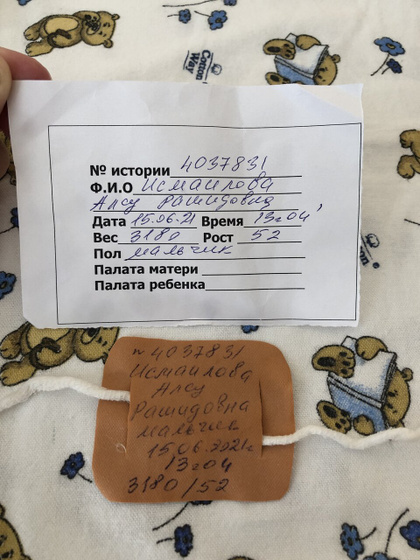 Cotton Way
№ истории 4037831
Ф.И.О Исмаилова
Алсу Рашидовна
Дата 15.06.21 Время 13ч04'
Вес 3180 Рост 52
Пол мальчик
Палата матери
Палата ребенка
n 4037831
Исмаилова
Алсу
Рашидовна
мальчик
15.06.2021г
13ч04
3180/52